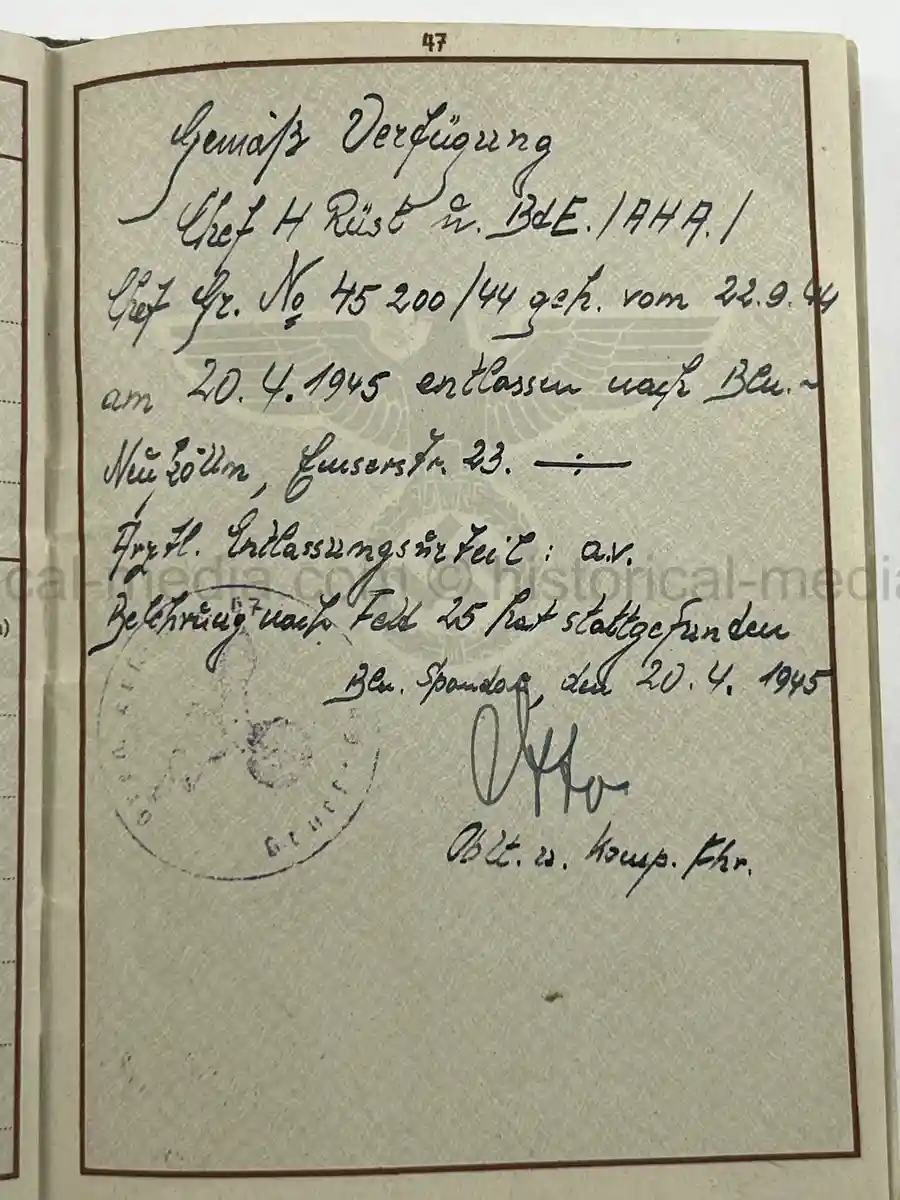 47
Gemäß Verfügung
Chef H Rüst u. BdE. /AHA./
Chef Gr. No 45 200/44 geh. vom 22.9.44
am 20.4.1945 entlassen nach Bln.-
Neukölln, Emserstr. 23. ÷
cal-media.com © historical-media
Ärztl. Entlassungsurteil: a.v.
Belehrung nach Feld 25 hat stattgefunden
Bln. Spandau, den 20.4.1945
Otto
Oblt. u. Komp. Fhr.